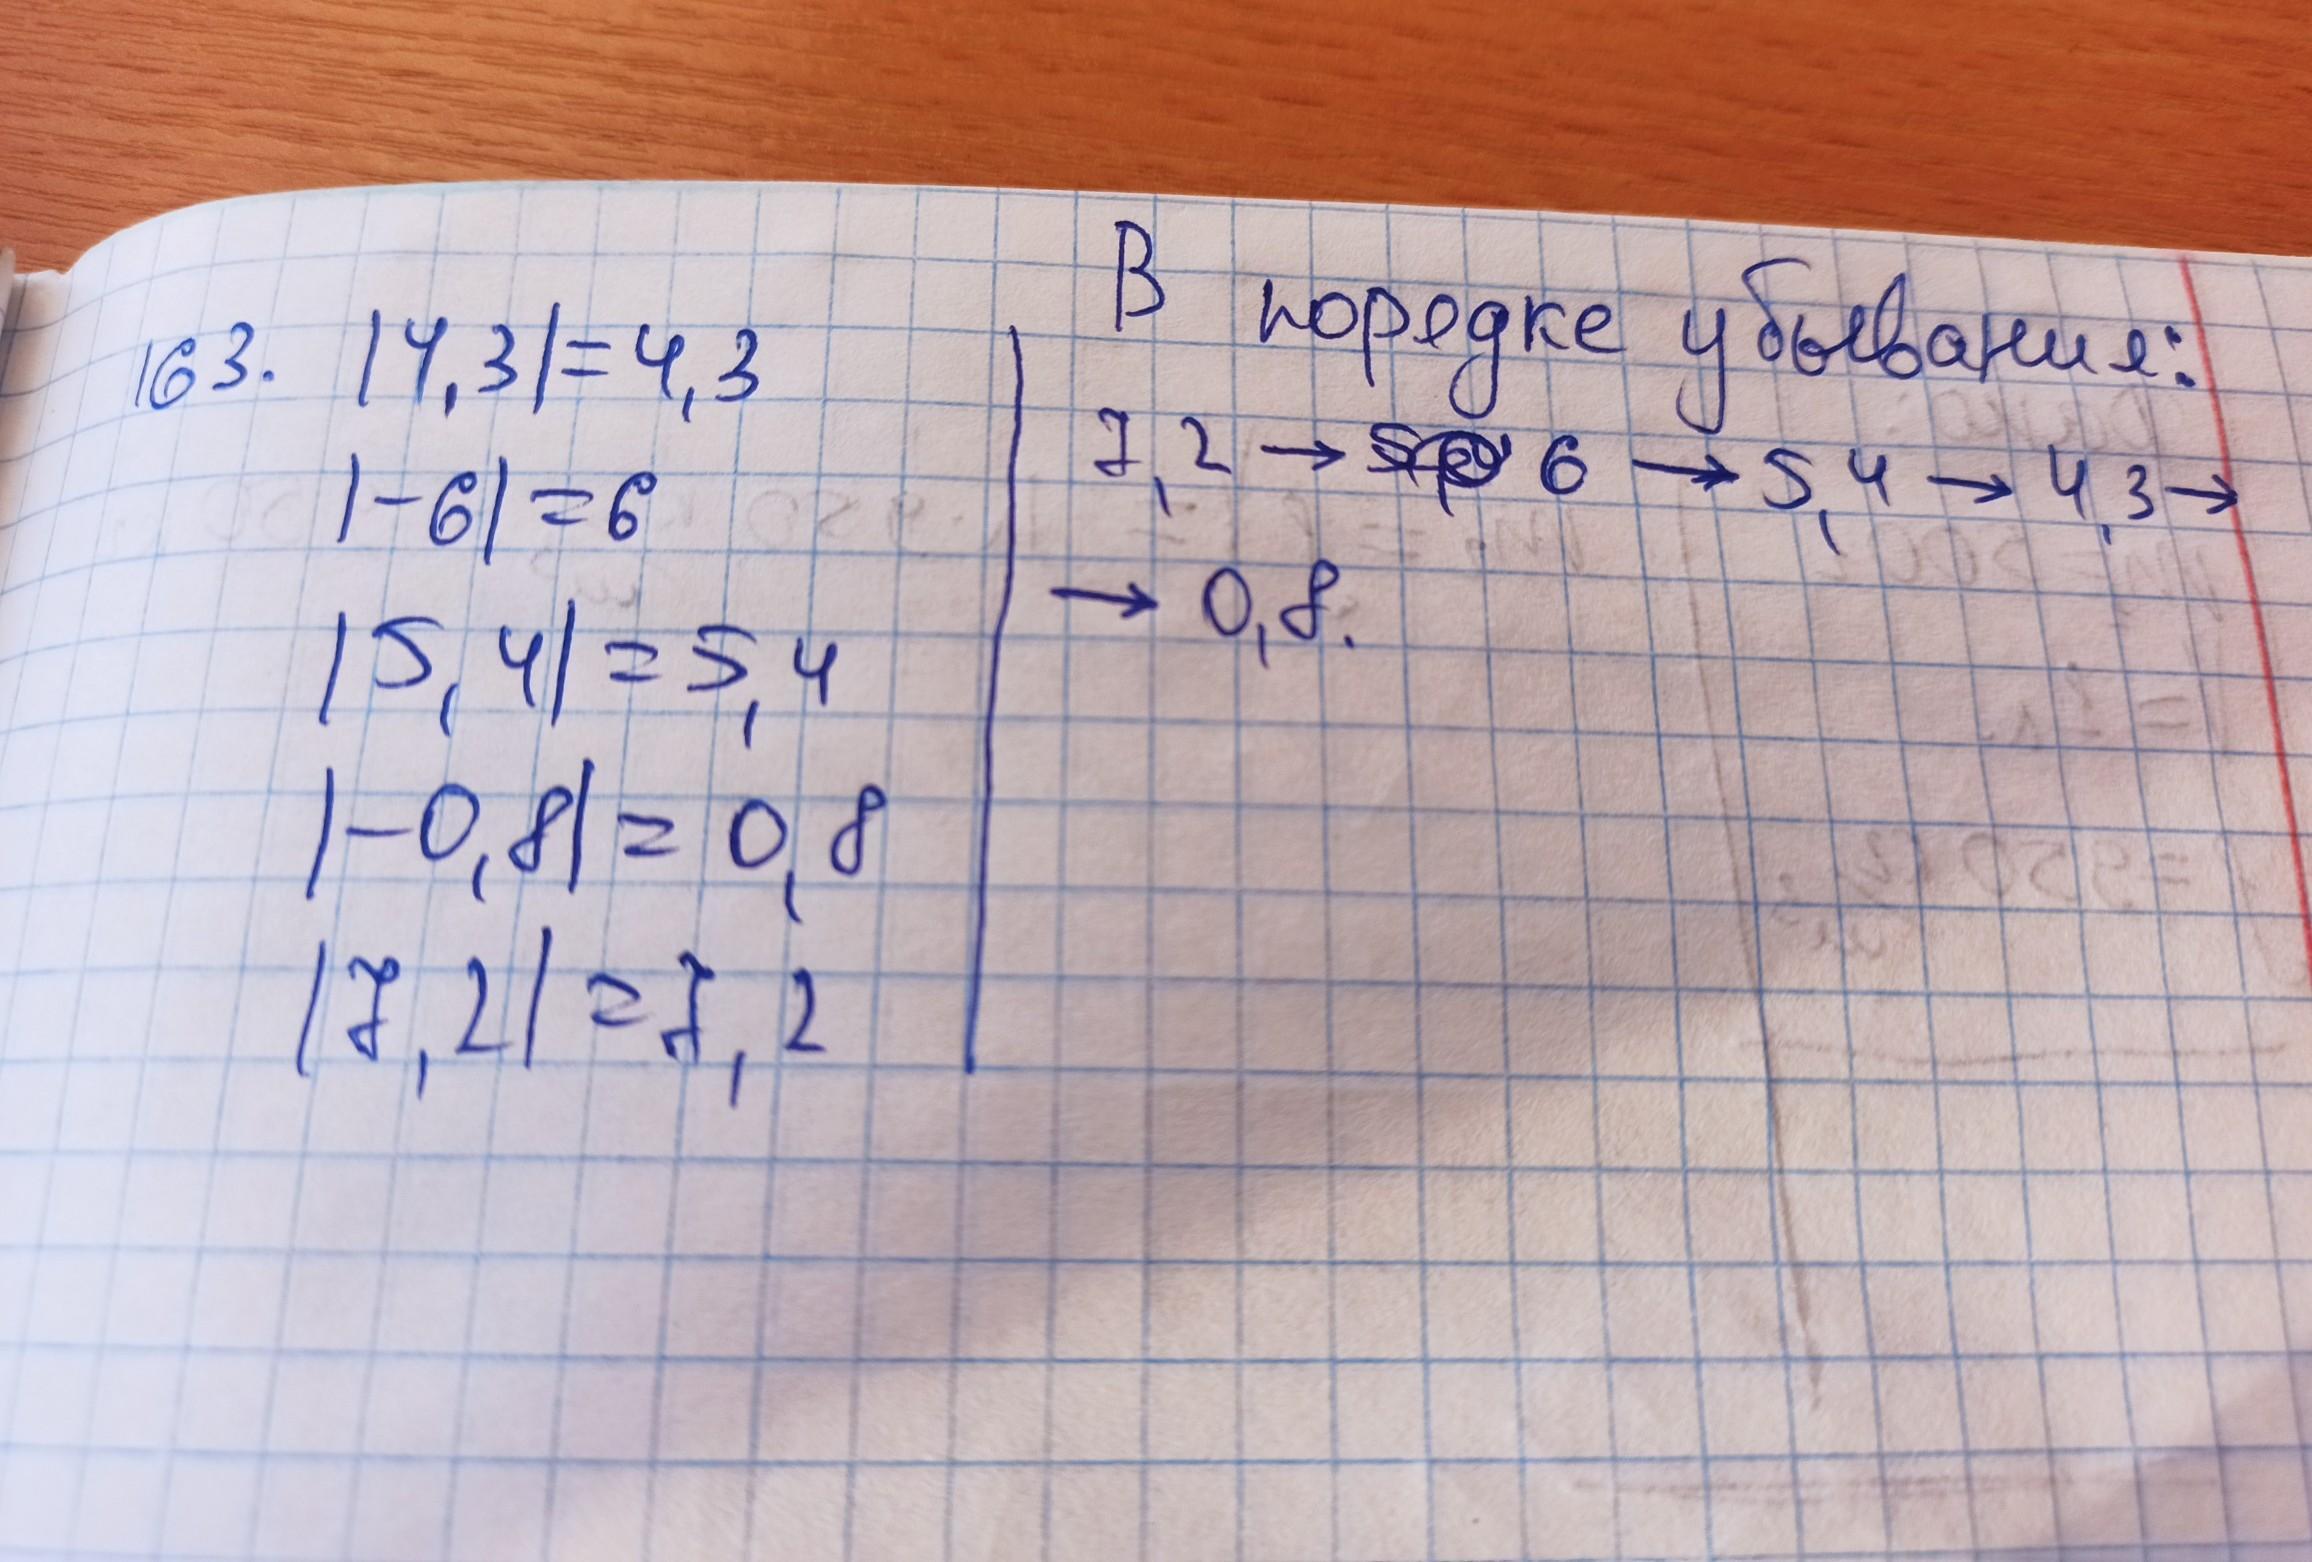 163. |4,3|=4,3
|-6|=6
|5,4|=5,4
|-0,8|=0,8
|7,2|=7,2
В порядке убывания:
7,2 → 6 → 5,4 → 4,3 →
→ 0,8.